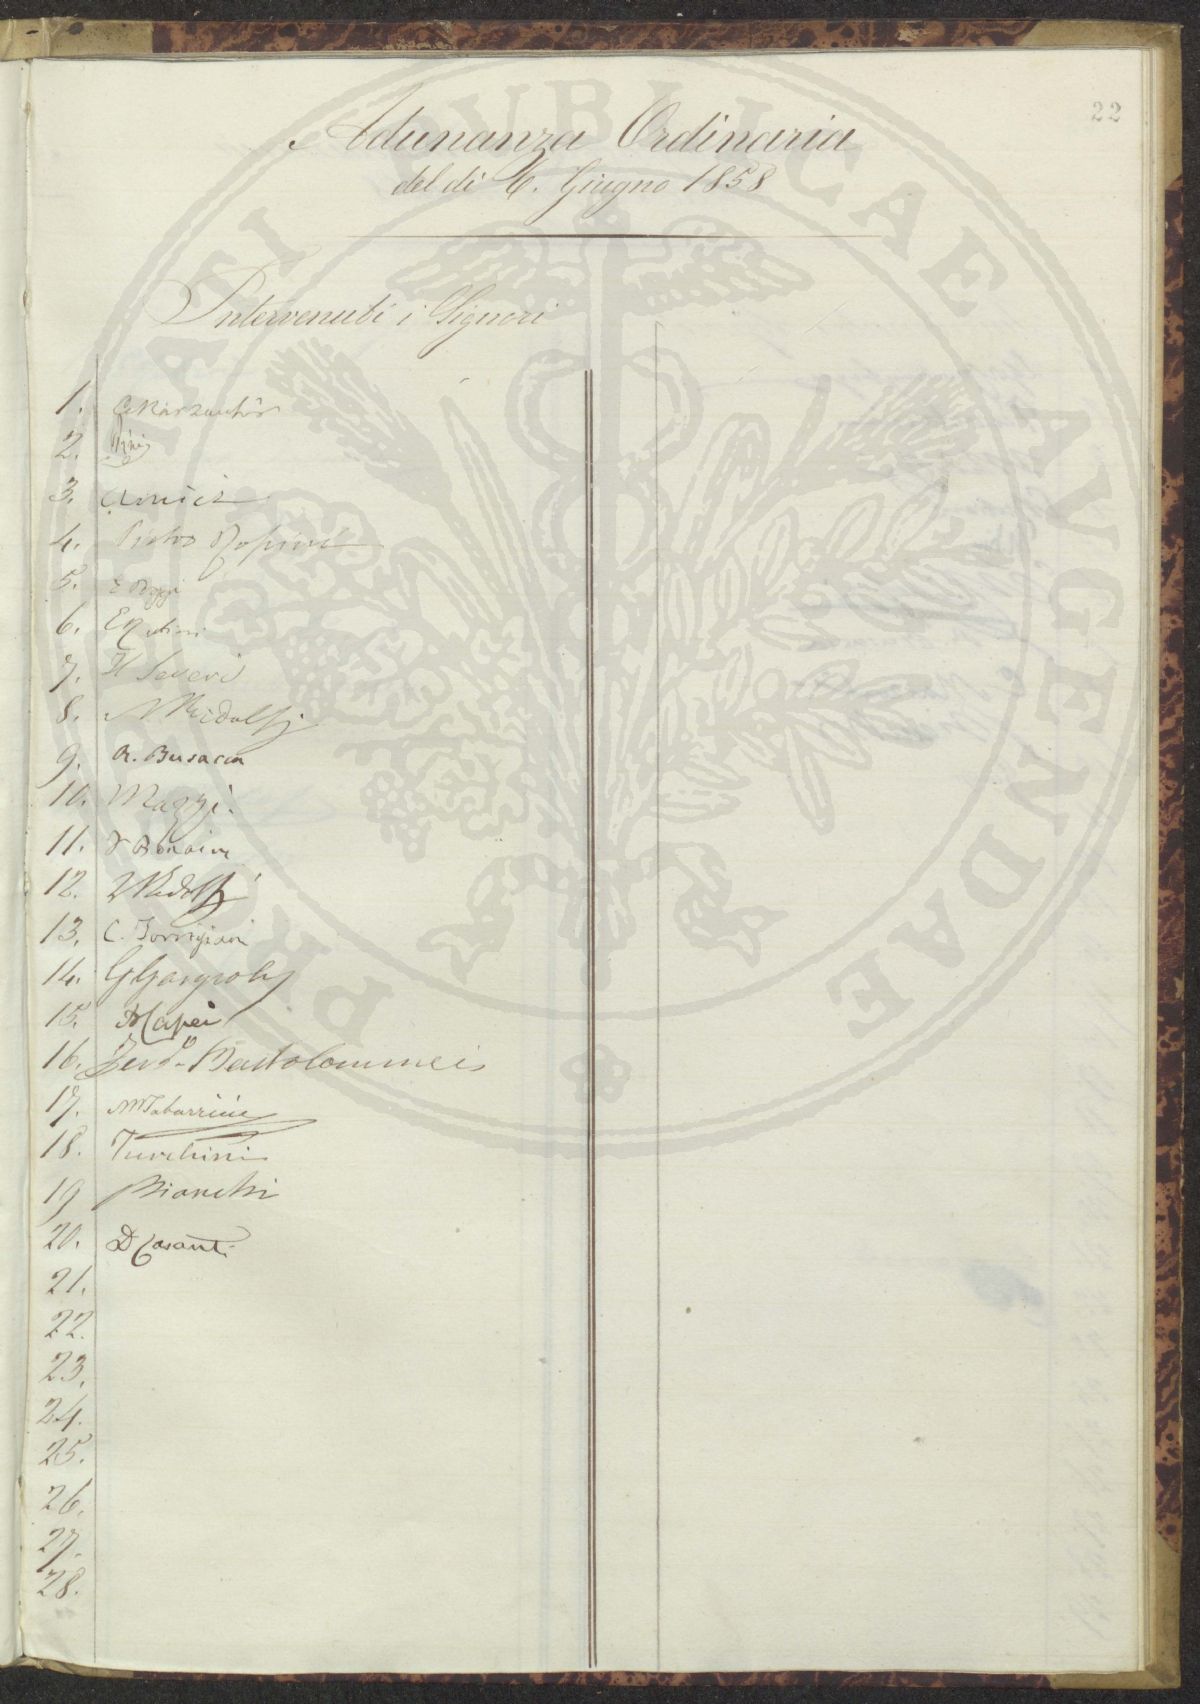 22
Adunanza Ordinaria
del dì 6. Giugno 1858
Intervenuti i Signori
1.
2.
3. Amici
4. Pietro Rossini
5. E Poggi
6. E Rubini
7. H Severi
8. N Ridolfi
9. R. Busacca
10. Mazzi.
11. F Bonaini
12. L Ridolfi
13. C. Torrigiani
14. G Gargiolli
15. Mapei
16. Ferd.º Bartolommei
17. M Tabarrini
18. Turchini
19 Bianchi
20. D Casanti
21.
22.
23.
24.
25.
26.
27.
28.
PROSPERITATI PUBLICAE AVGENDAE